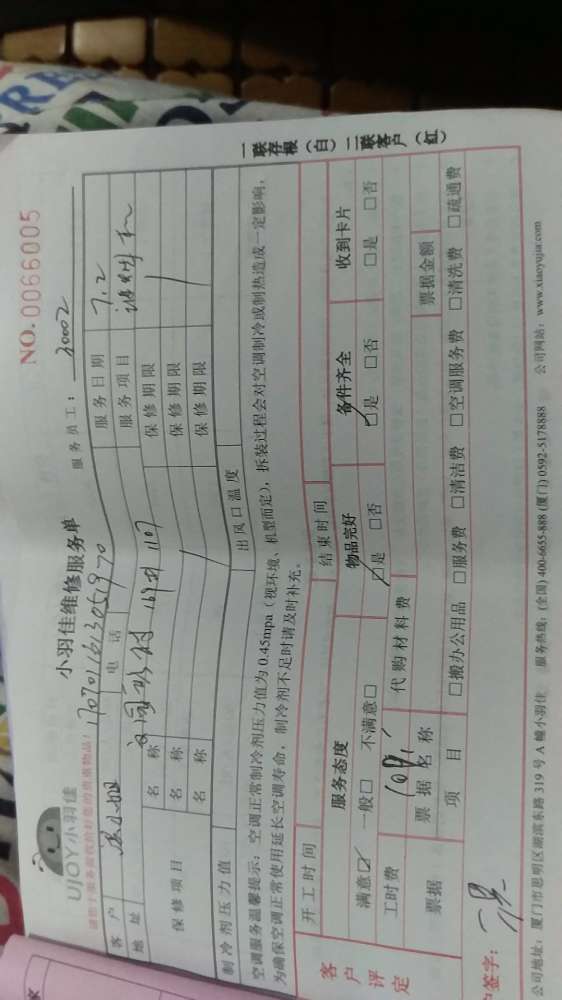 UJOY小羽佳
小羽佳维修服务单
NO.0066005
请您于服务前收拾好您的贵重物品!
服务员工: 30002
客户 电话 服务日期 7.2
地址 服务项目
保修项目 名称 保修期限
名称 保修期限
名称 保修期限
制冷剂压力值 出风口温度
空调服务温馨提示:空调正常制冷剂压力值为0.45mpa(视环境、机型而定),拆装过程会对空调制冷或制热造成一定影响,
为确保空调正常使用延长空调寿命,制冷剂不足时请及时补充。
开工时间 结束时间
客户评定 服务态度 物品完好 备件齐全 收到卡片
满意☑ 一般□ 不满意□ ☑是 □否 ☑是 □否 □是 □否
工时费 代购材料费
票据 票据名称 票据金额
项目 □搬办公用品 □服务费 □清洁费 □空调服务费 □清洗费 □疏通费
签字:
公司地址:厦门市思明区湖滨东路319号A幢小羽佳 服务热线:(全国)400-6655-888 (厦门)0592-5178888 公司网站:www.xiaoyujia.com
一联存根(白)二联客户(红)